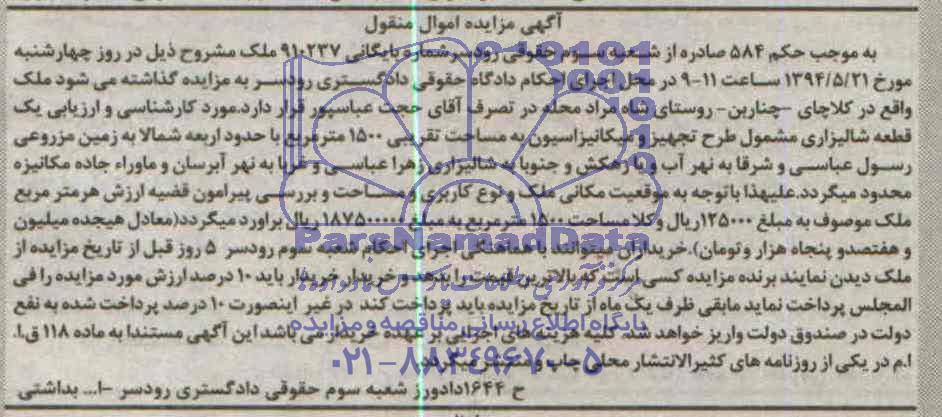 آگهی مزایده اموال منقول
به موجب حکم ۵۸۴ صادره از شعبه سوم حقوقی رودسر شماره بایگانی ۹۱۰۲۳۷ ملک مشروح ذیل در روز چهارشنبه
مورخ ۱۳۹۴/۵/۲۱ ساعت ۱۱-۹ در محل اجرای احکام دادگاه حقوقی دادگستری رودسر به مزایده گذاشته می شود ملک
واقع در کلاچای -چنارین- روستای شاه مراد محله در تصرف آقای حجت عباسپور قرار دارد.مورد کارشناسی و ارزیابی یک
قطعه شالیزاری مشمول طرح تجهیز و مکانیزاسیون به مساحت تقریبی ۱۵۰۰ مترمربع با حدود اربعه شمالا به زمین مزروعی
رسول عباسی و شرقا به نهر آب و یا زهکش و جنوبا به شالیزاری زهرا عباسی و غربا به نهر آبرسان و ماوراء جاده مکانیزه
محدود میگردد.علیهذا باتوجه به موقعیت مکانی ملک و نوع کاربری و مساحت و بررسی پیرامون قضیه ارزش هرمتر مربع
ملک موصوف به مبلغ ۱۲۵۰۰۰ریال و کلا مساحت ۱۵۰۰ مترمربع به مبلغ ۱۸۷۵۰۰۰۰۰ ریال براورد میگردد(معادل هیجده میلیون
و هفتصدو پنجاه هزار وتومان).خریداران میتوانند با هماهنگی اجرای احکام شعبه سوم رودسر ۵ روز قبل از تاریخ مزایده از
ملک دیدن نمایند برنده مزایده کسی است که بالاترین قیمت را بدهد و خریدار خریدار باید ۱۰ درصد ارزش مورد مزایده را فی
المجلس پرداخت نماید مابقی ظرف یک ماه از تاریخ مزایده باید پرداخت کند در غیر اینصورت ۱۰ درصد پرداخت شده به نفع
دولت در صندوق دولت واریز خواهد شد. کلیه هزینه های اجرایی بر عهده خریدار می باشد این آگهی مستندا به ماده ۱۱۸ ق.ا.
ا.م در یکی از روزنامه های کثیرالانتشار محلی چاپ و منتشر میگردد.
ح ۱۶۴۴دادورز شعبه سوم حقوقی دادگستری رودسر -ا... بداشتی
ParsNamadData
پایگاه اطلاع رسانی مناقصه و مزایده
۰۲۱-۸۸۳۴۹۶۷۰-۵